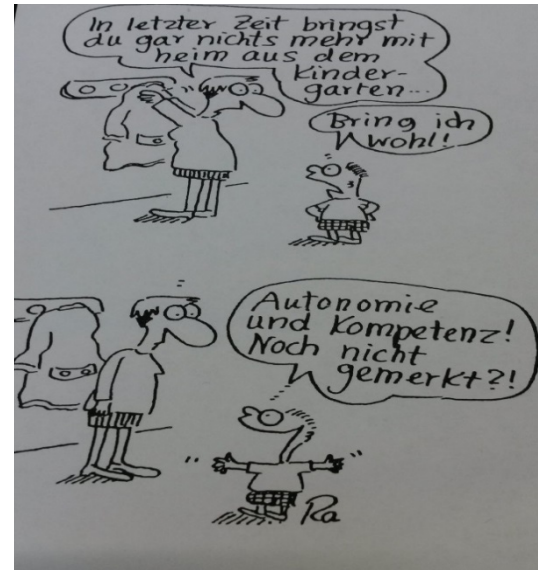 In letzter Zeit bringst
du gar nichts mehr mit
heim aus dem
Kinder-
garten...
Bring ich
wohl!
Autonomie
und Kompetenz!
Noch nicht
gemerkt?!
Ra